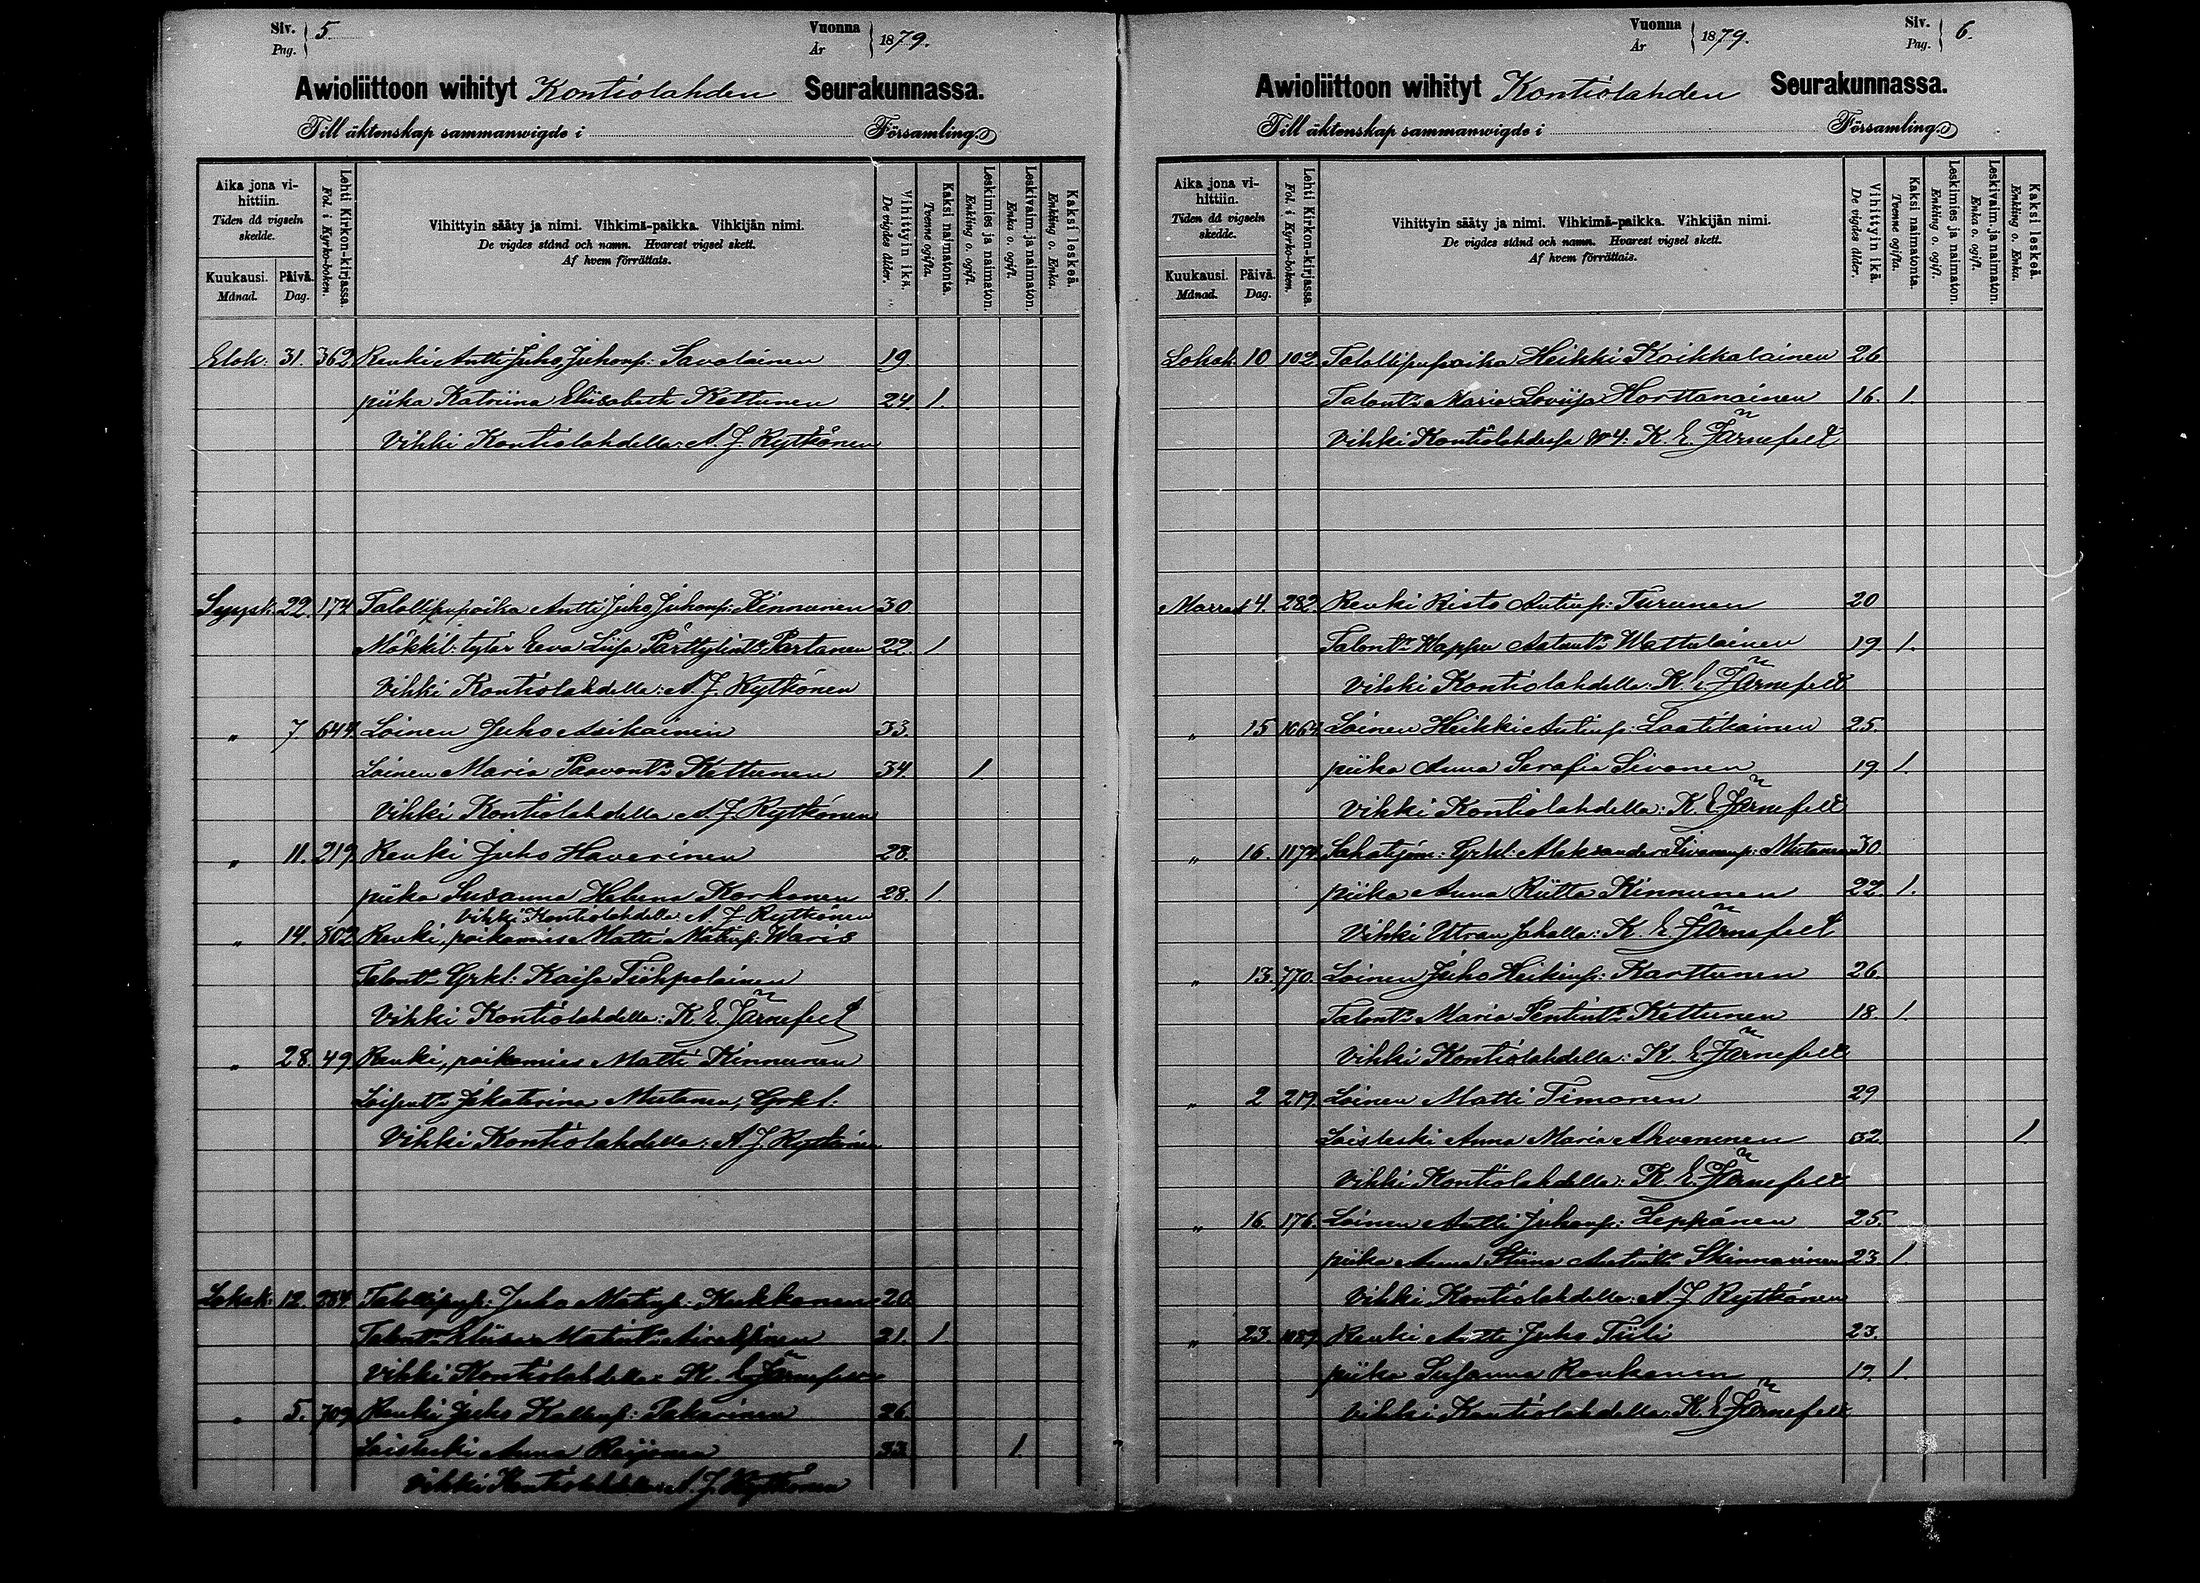 Siv. Pag. 5. Vuonna År 1879.
Awioliittoon wihityt Kontiolahden Seurakunnassa.
Till äktenskap sammanwigde i Församling.
Aika jona vihittiin. Tiden då vigseln skedde.
Kuukausi. Månad. Päivä. Dag.
Lehti Kirkon-kirjassa. Fol. i Kyrko-boken.
Vihittyin sääty ja nimi. Vihkimä-paikka. Vihkijän nimi.
De vigdes stånd och namn. Hvarest vigsel skett.
Af hvem förrättats.
Vihittyin ikä. De vigdes ålder.
Kaksi naimatonta. Tvenne ogifta.
Leskimies ja naimaton. Enkling o. ogift.
Leskivaim. ja naimaton. Enka o. ogift.
Kaksi leskeä. Enkling o. Enka.
Elok: 31. 362 Renki Antti Juho Juhonp: Savolainen 19.
piika Katriina Eliisabeth Kettunen 24. 1.
Vihki Kontiolahdella: A. J. Rytkönen
Syysk: 22. 174 Talollisenpoika Antti Juho Juhonp: Kinnunen 30
Mökkil: tytär Eeva Liisa Pärttylint: Partanen 22. 1
Vihki Kontiolahdella: A. J. Rytkönen
" 7 644 Loinen Juho Asikainen 33.
Loinen Maria Paavont: Kettunen 34. 1
Vihki Kontiolahdella A. J. Rytkönen
" 11. 219 Renki Juho Haverinen 28.
piika Susanna Helena Korhonen 28. 1.
Vihki Kontiolahdella A. J. Rytkönen
" 14. 802 Renki, poikamies Matti Matinp: Waris
Talont: Grkl: Kaisa Tiihpolainen
Vihki Kontiolahdella: K. E. Järnefelt
" 28. 49 Renki, poikamies Matti Kinnunen
Loisent: Jekaterina Mutanen, Grkl:
Vihki Kontiolahdella: A. J. Rytkönen
Lokak: 12. 284 Talollisenp: Juho Matinp: Kukkonen 20.
Talont: Eliisa Matint: Airaksinen 21. 1
Vihki Kontiolahdella: K. E. Järnefelt
" 5. 709 Renki Juho Kallenp: Pakarinen 26.
Loisleski Anna Reijonen 33. 1.
Vihki Kontiolahdella: A. J. Rytkönen
Vuonna År 1879. Siv. Pag. 6.
Awioliittoon wihityt Kontiolahden Seurakunnassa.
Till äktenskap sammanwigde i Församling.
Aika jona vihittiin. Tiden då vigseln skedde.
Kuukausi. Månad. Päivä. Dag.
Lehti Kirkon-kirjassa. Fol. i Kyrko-boken.
Vihittyin sääty ja nimi. Vihkimä-paikka. Vihkijän nimi.
De vigdes stånd och namn. Hvarest vigsel skett.
Af hvem förrättats.
Vihittyin ikä. De vigdes ålder.
Kaksi naimatonta. Tvenne ogifta.
Leskimies ja naimaton. Enkling o. ogift.
Leskivaim. ja naimaton. Enka o. ogift.
Kaksi leskeä. Enkling o. Enka.
Lokak 10 102 Talollispoika Heikki Koikkalainen 26
Talont: Maria Loviisa Horttanainen 16. 1.
Vihki Kontiolahdessa K. E. Järnefelt
Marras 4. 282. Renki Risto Antinp: Turunen 20
Talont: Wappu Antint: Wattulainen 19 1.
Vihki Kontiolahdella: K. E. Järnefelt
" 15 1064 Loinen Heikki Antinp: Laatikainen 25.
piika Anna Serafia Sivonen 19. 1.
Vihki Kontiolahdella: K. E. Järnefelt
" 16. 1174 Sahatyöm: Grkl: Aleksander Iivananp: Mutanen 30.
piika Anna Riitta Kinnunen 22. 1.
Vihki Utran sahalla: K. E. Järnefelt
" 13. 770. Loinen Juho Heikinp: Karttunen 26.
Talont: Maria Pentint: Kettunen 18. 1.
Vihki Kontiolahdella: K. E. Järnefelt
" 2 219 Loinen Matti Timonen 29
Loisleski Anna Maria Ahveninen 32. 1
Vihki Kontiolahdella: K. E. Järnefelt
" 16. 176. Loinen Antti Juhonp: Leppänen 25.
piika Anna Stiina Antint: Skinnarinen 23. 1.
Vihki Kontiolahdella: A. J. Rytkönen
" 23. 1089 Renki Antti Juho Tiili 23.
piika Susanna Ronkanen 19. 1.
Vihki Kontiolahdella: K. E. Järnefelt